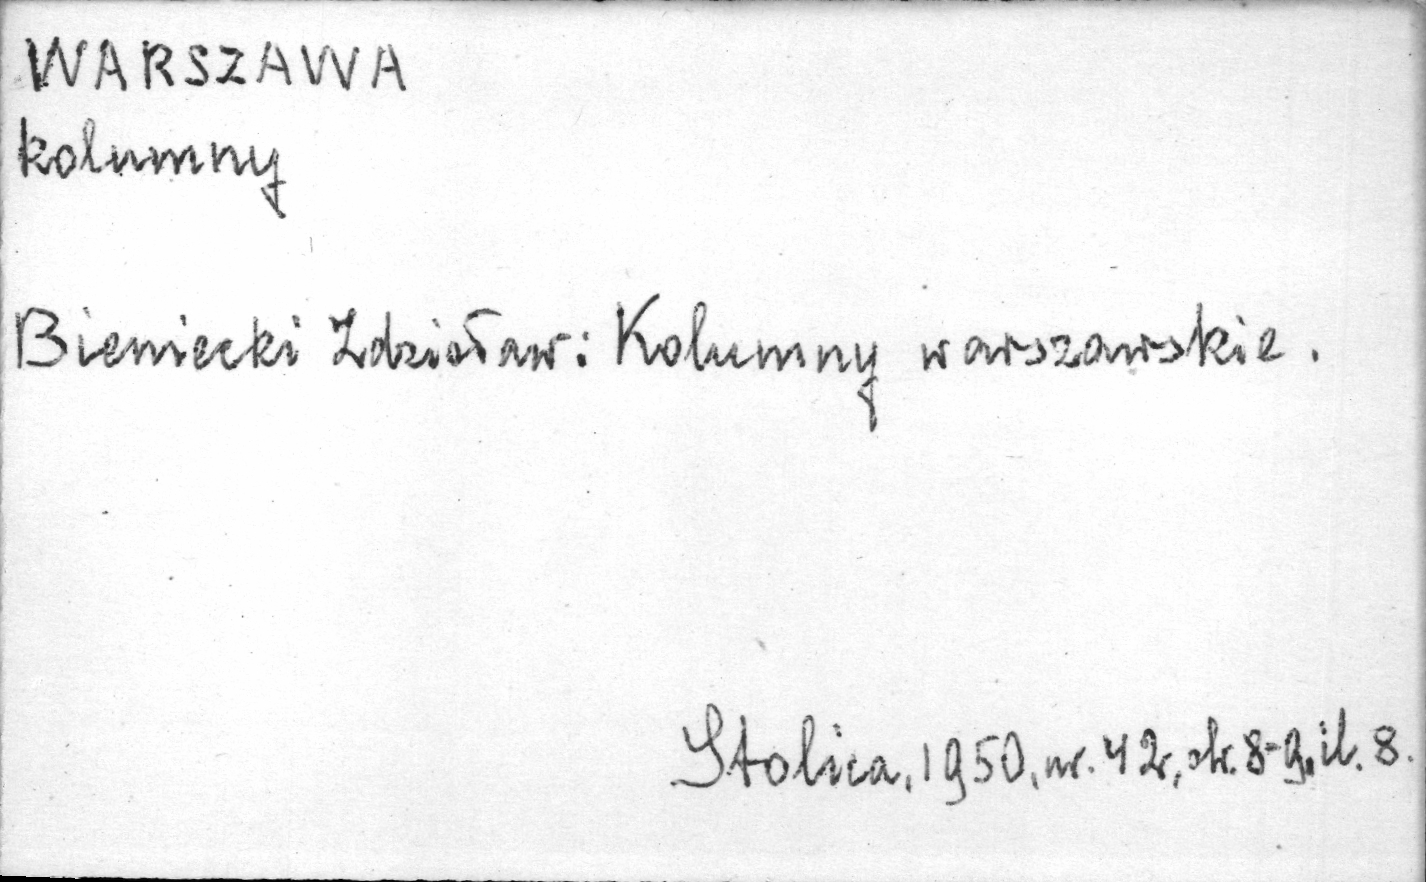 WARSZAWA
kolumny
Bieniecki Zdzisław: Kolumny warszawskie.
Stolica, 1950, nr. 42, str. 8-9, il. 8.